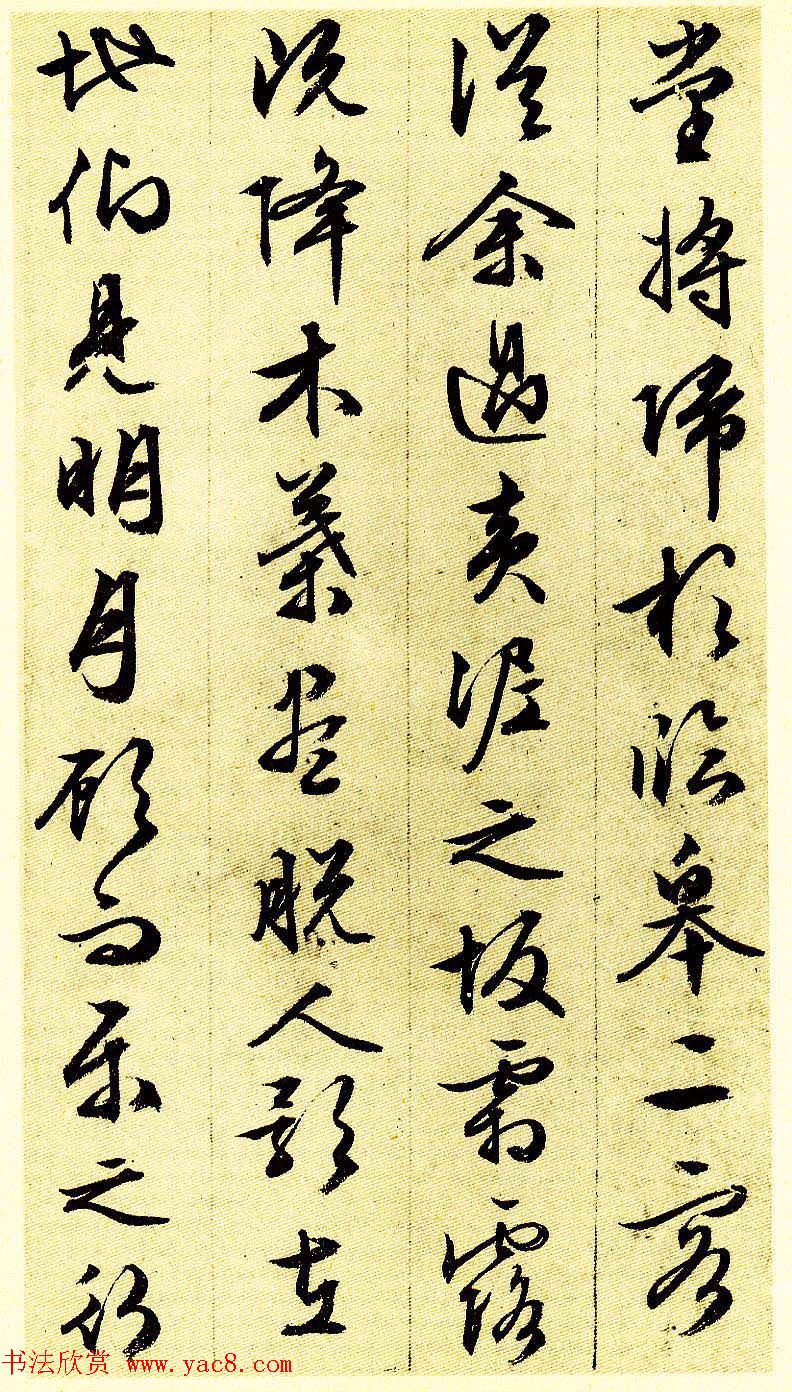 堂將歸於臨皋二客
從余過黃泥之坂霜露
既降木葉盡脫人影在
地仰見明月顧而樂之行
书法欣赏 www.yac8.com